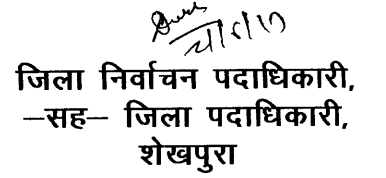 जिला निर्वाचन पदाधिकारी,
–सह– जिला पदाधिकारी,
शेखपुरा